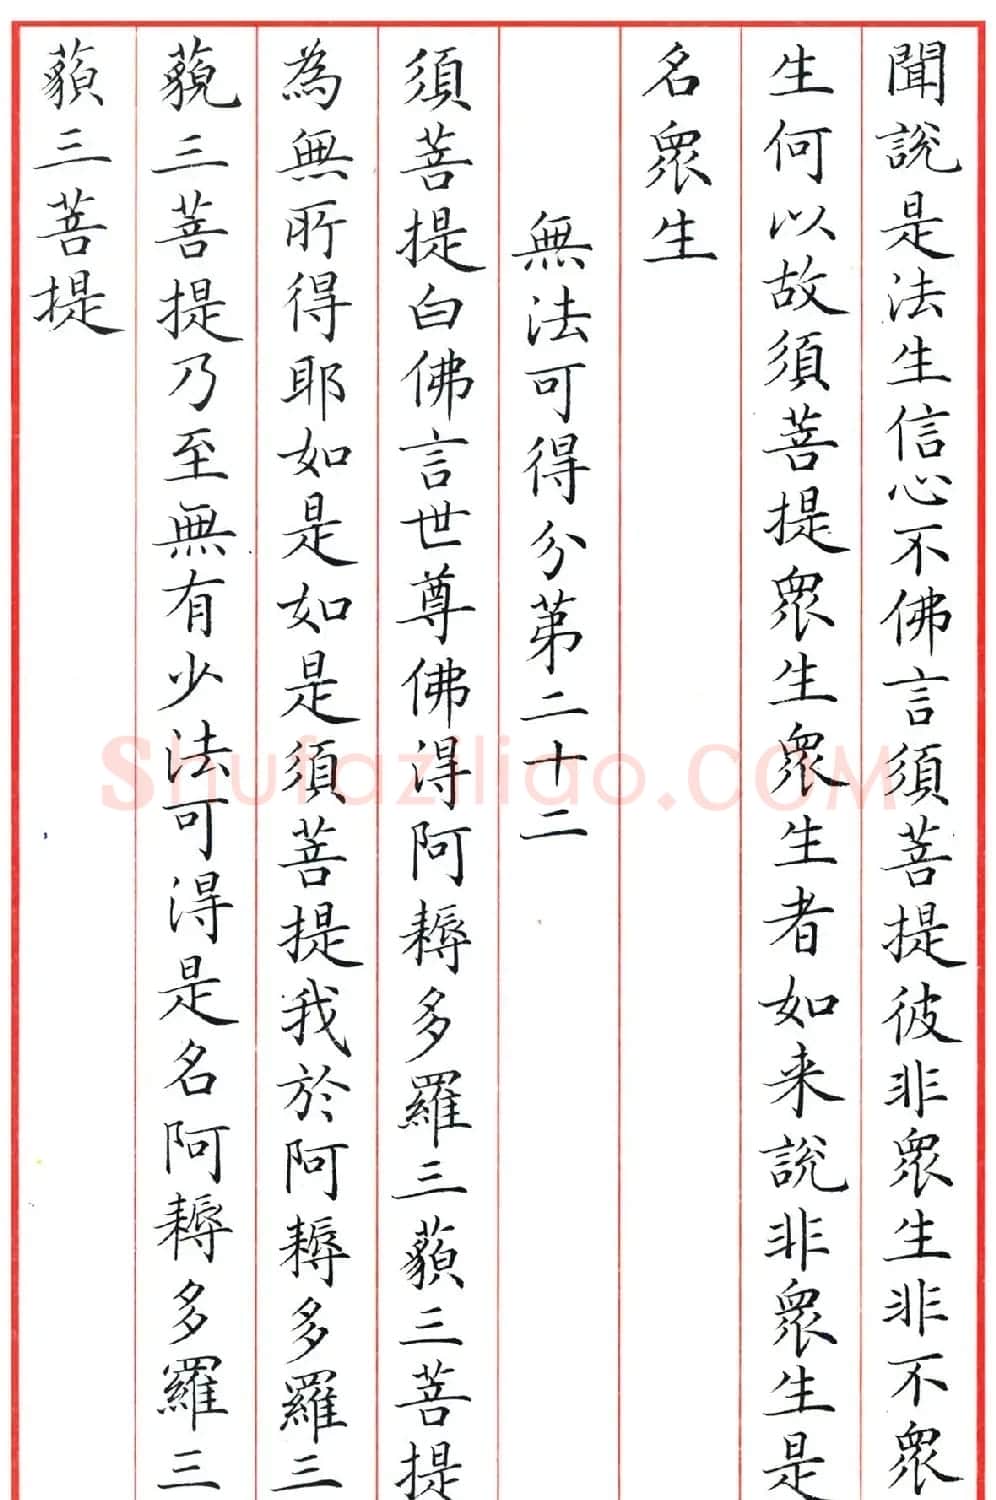 聞說是法生信心不佛言須菩提彼非衆生非不衆
生何以故須菩提衆生衆生者如来說非衆生是
名衆生
無法可得分第二十二
須菩提白佛言世尊佛得阿耨多羅三藐三菩提
為無所得耶如是如是須菩提我於阿耨多羅三
藐三菩提乃至無有少法可得是名阿耨多羅三
藐三菩提
Shufaziliao.COM